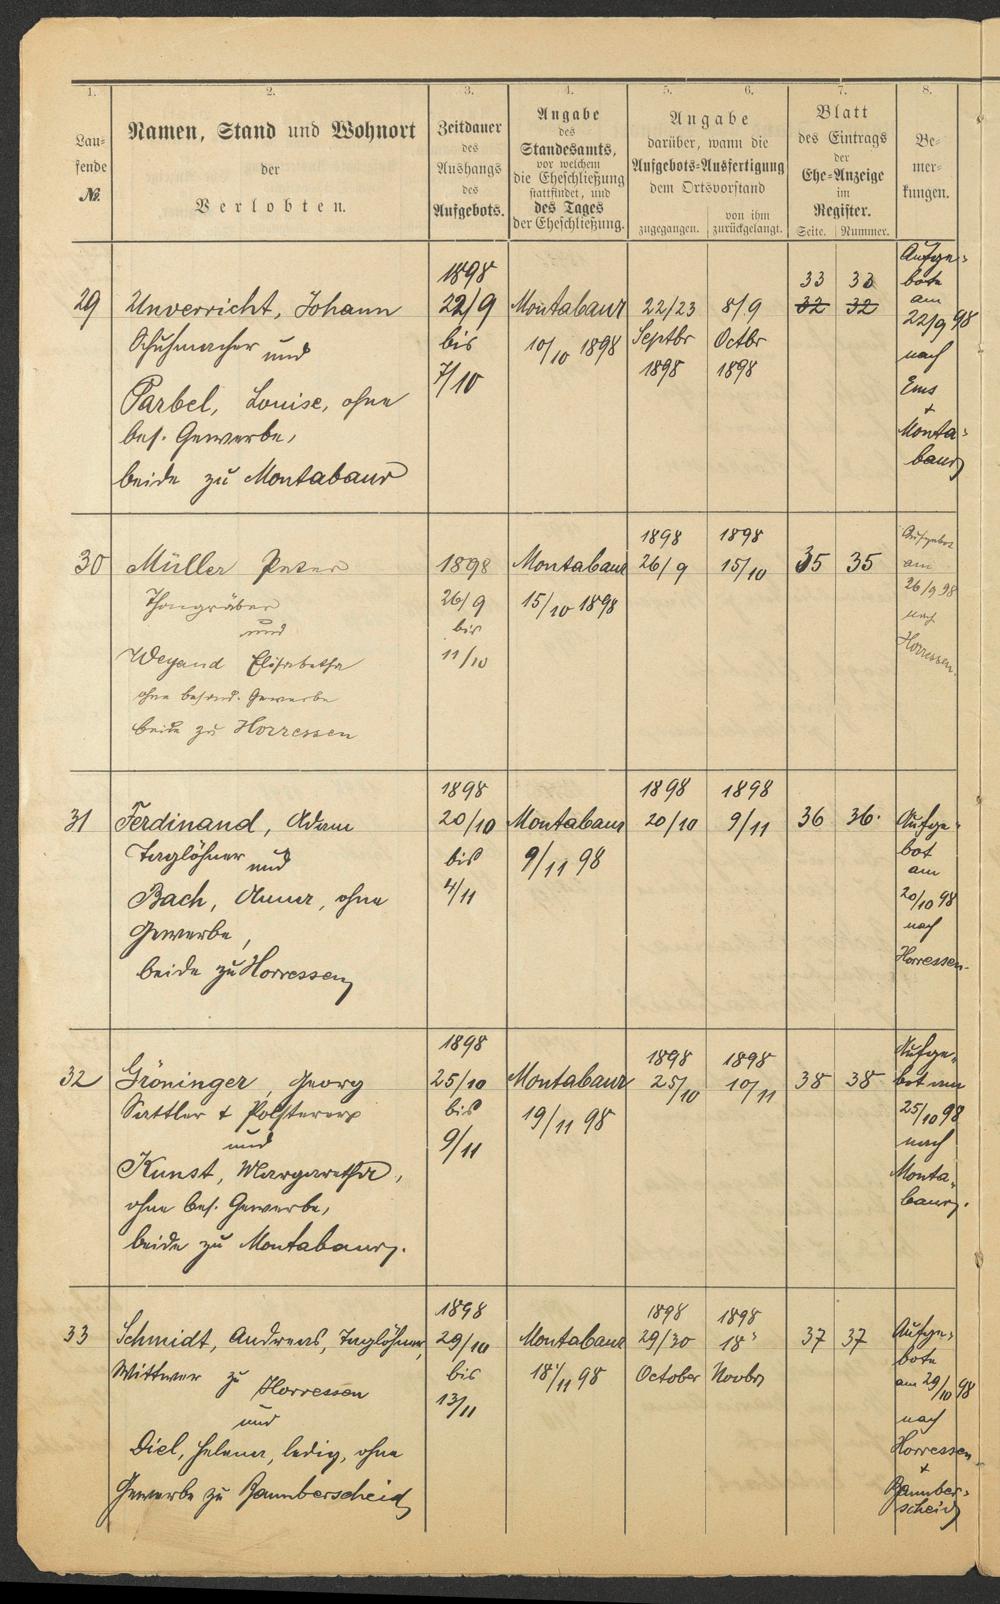 1.
Lau-
fende
№.
2.
Namen, Stand und Wohnort
der
Verlobten.
3.
Zeitdauer
des
Aushangs
des
Aufgebots.
4.
Angabe
des
Standesamts,
vor welchem
die Eheschließung
stattfindet, und
des Tages
der Eheschließung.
5. 6.
Angabe
darüber, wann die
Aufgebots-Ausfertigung
dem Ortsvorstand
zugegangen.
von ihm
zurückgelangt.
7.
Blatt
des Eintrags
der
Ehe-Anzeige
im
Register.
Seite. Nummer.
8.
Be-
mer-
kungen.
29
Unverricht, Johann
Schuhmacher und
Parbel, Louise, ohne
bes. Gewerbe,
beide zu Montabaur
1898
22/9
bis
7/10
Montabaur
10/10 1898
22/23
Septbr
1898
8/9
Octbr
1898
33 33
32 32
Aufge-
bote
am
22/9 98
nach
Ems
+
Monta-
baur
30
Müller Peter
Thongräber
und
Weyand Elisabetha
ohne besond. Gewerbe
beide zu Horressen
1898
26/9
bis
11/10
Montabaur
15/10 1898
1898
26/9
1898
15/10
35 35
Aufgebot
am
26/9 98
nach
Horressen.
31
Ferdinand, Adam
Taglöhner und
Bach, Anna, ohne
Gewerbe,
beide zu Horressen
1898
20/10
bis
4/11
Montabaur
9/11 98
1898
20/10
1898
9/11
36 36.
Aufge-
bot
am
20/10 98
nach
Horressen.
32
Gröninger, Georg
Sattler & Polsterer
und
Kunst, Margaretha,
ohne bes. Gewerbe,
beide zu Montabaur.
1898
25/10
bis
9/11
Montabaur
19/11 98
1898
25/10
1898
10/11
38 38
Aufge-
bot am
25/10 98
nach
Monta-
baur.
33
Schmidt, Andreas, Taglöhner,
Wittwer zu Horressen
und
Diel, Helena, ledig, ohne
Gewerbe zu Bannberscheid
1898
29/10
bis
13/11
Montabaur
18/11 98
1898
29/30
October
1898
18
Novbr
37 37
Aufge-
bote
am 29/10 98
nach
Horressen
+
Bannber-
scheid